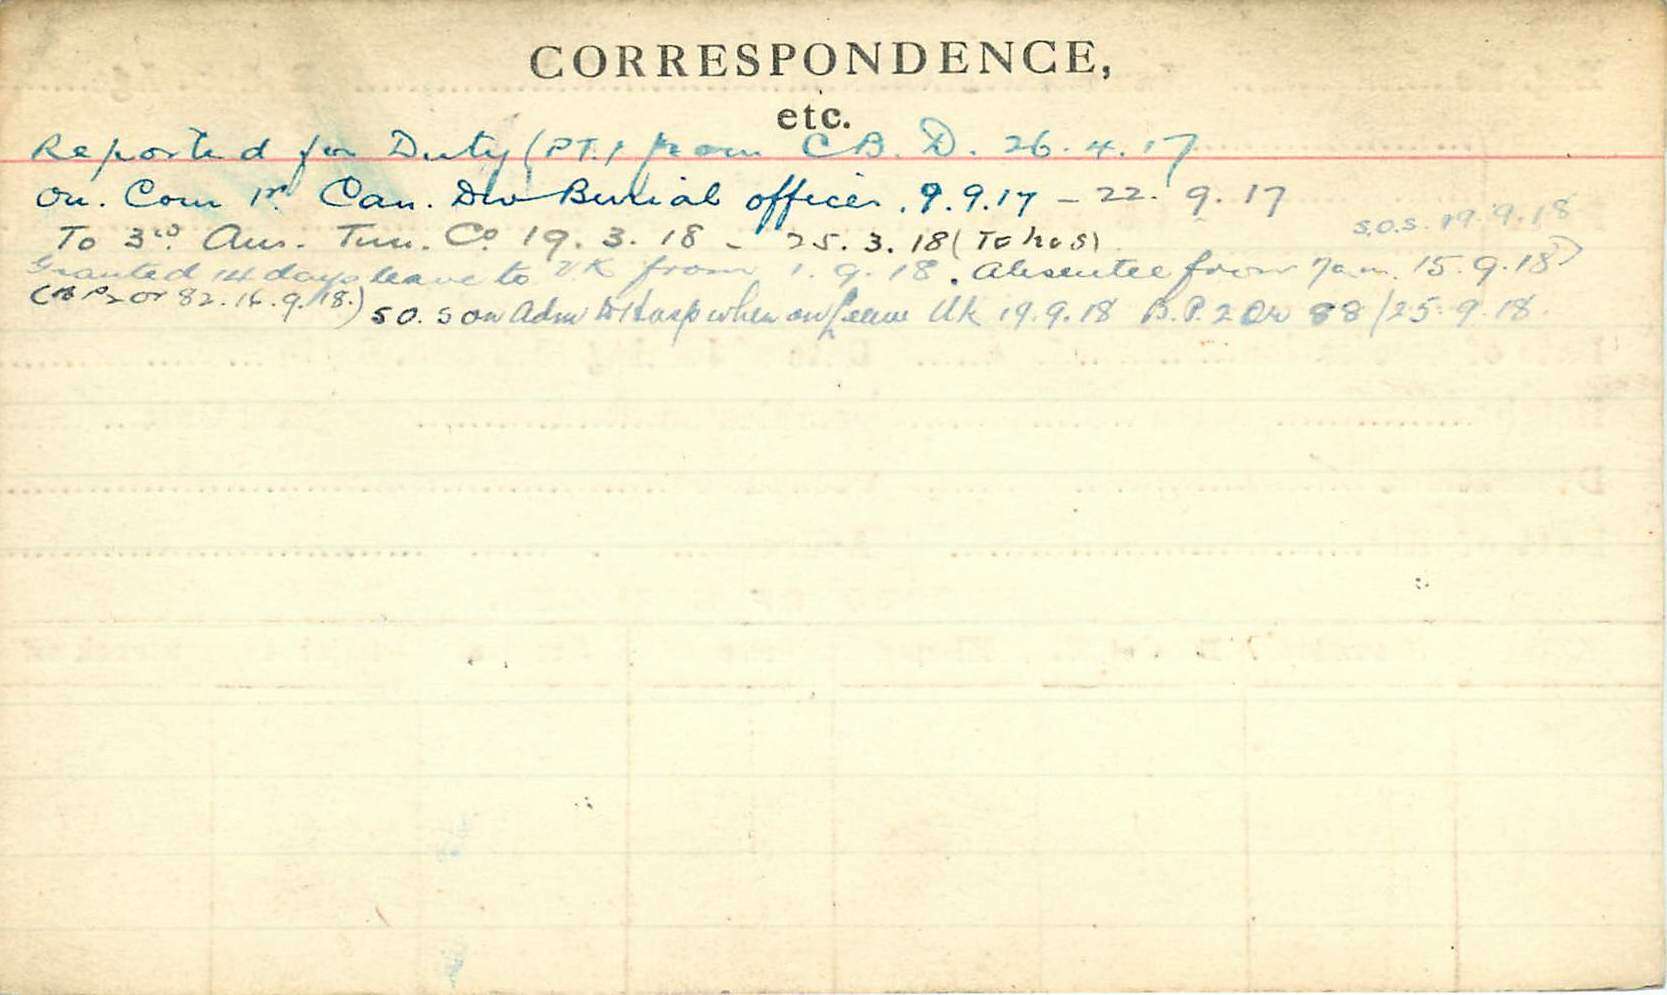 CORRESPONDENCE,
etc.
Reported for Duty (PT.) from C B. D. 26.4.17
On. Com 1st Can. Div Burial officer. 9.9.17 - 22.9.17
To 3rd Aus. Tun. Co 19.3.18 - 25.3.18
S.O.S. 19.9.18
Granted 14 days leave to UK from 1.9.18. Absentee from 7am. 15.9.18)
82.16.9.18.) S.O.S on Adm to Hosp when on Leave UK 19.9.18 B.P. 2 Or 88/25.9.18.